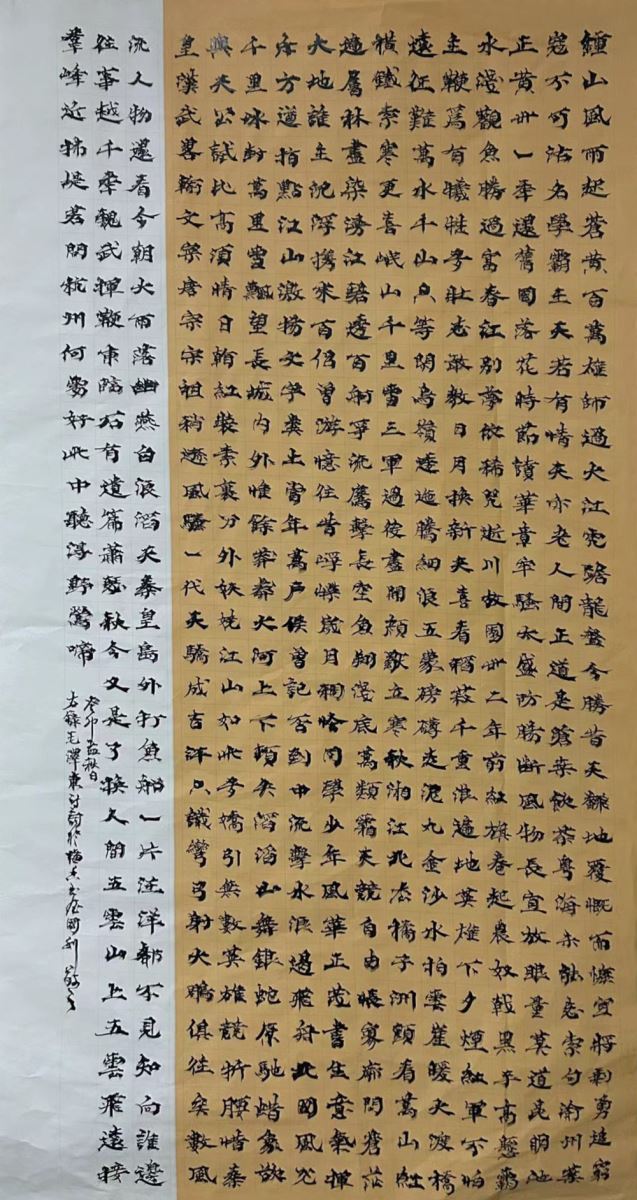 鍾山風雨起蒼黃百萬雄師過大江虎踞龍盤今勝昔天翻地覆慨而慷宜將剩勇追窮
寇不可沽名學霸王天若有情天亦老人間正道是滄桑飲茶粵海未能忘索句渝州葉
正黃卅一年還舊國落花時節讀華章牢騷太盛防腸斷風物長宜放眼量莫道昆明池
水淺觀魚勝過富春江別夢依稀咒逝川故園卅二年前紅旗卷起農奴戟黑手高懸霸
主鞭為有犧牲多壯志敢教日月換新天喜看稻菽千重浪遍地英雄下夕煙紅軍不怕
遠征難萬水千山只等閒烏嶺逶迤騰細浪五蒙磅礴走泥丸金沙水拍雲崖暖大渡橋
橫鐵索寒更喜岷山千里雪三軍過後盡開顏獨立寒秋湘江北去橘子洲頭看萬山紅
遍層林盡染漫江碧透百舸爭流鷹擊長空魚翔淺底萬類霜天競自由悵寥廓問蒼茫
大地誰主沉浮攜來百侶曾游憶往昔崢嶸歲月稠恰同學少年風華正茂書生意氣揮
斥方遒指點江山激揚文字糞土當年萬戶侯曾記否到中流擊水浪遏飛舟北國風光
千里冰封萬里雪飄望長城內外惟餘莽莽大河上下頓失滔滔山舞銀蛇原馳蠟象欲
與天公試比高須晴日看紅裝素裹分外妖嬈江山如此多嬌引無數英雄競折腰惜秦
皇漢武略輸文采唐宗宋祖稍遜風騷一代天驕成吉汗只識彎弓射大鵰俱往矣數風
流人物還看今朝大雨落幽燕白浪滔天秦皇島外打魚船一片汪洋都不見知向誰邊
往事越千年魏武揮鞭東臨石有遺篇蕭瑟秋今又是了換人間五雲山上五雲飛遠接
羣峰近拂堤若問杭州何處好此中聽得野鶯啼
癸卯孟秋日
右錄毛澤東詩詞於